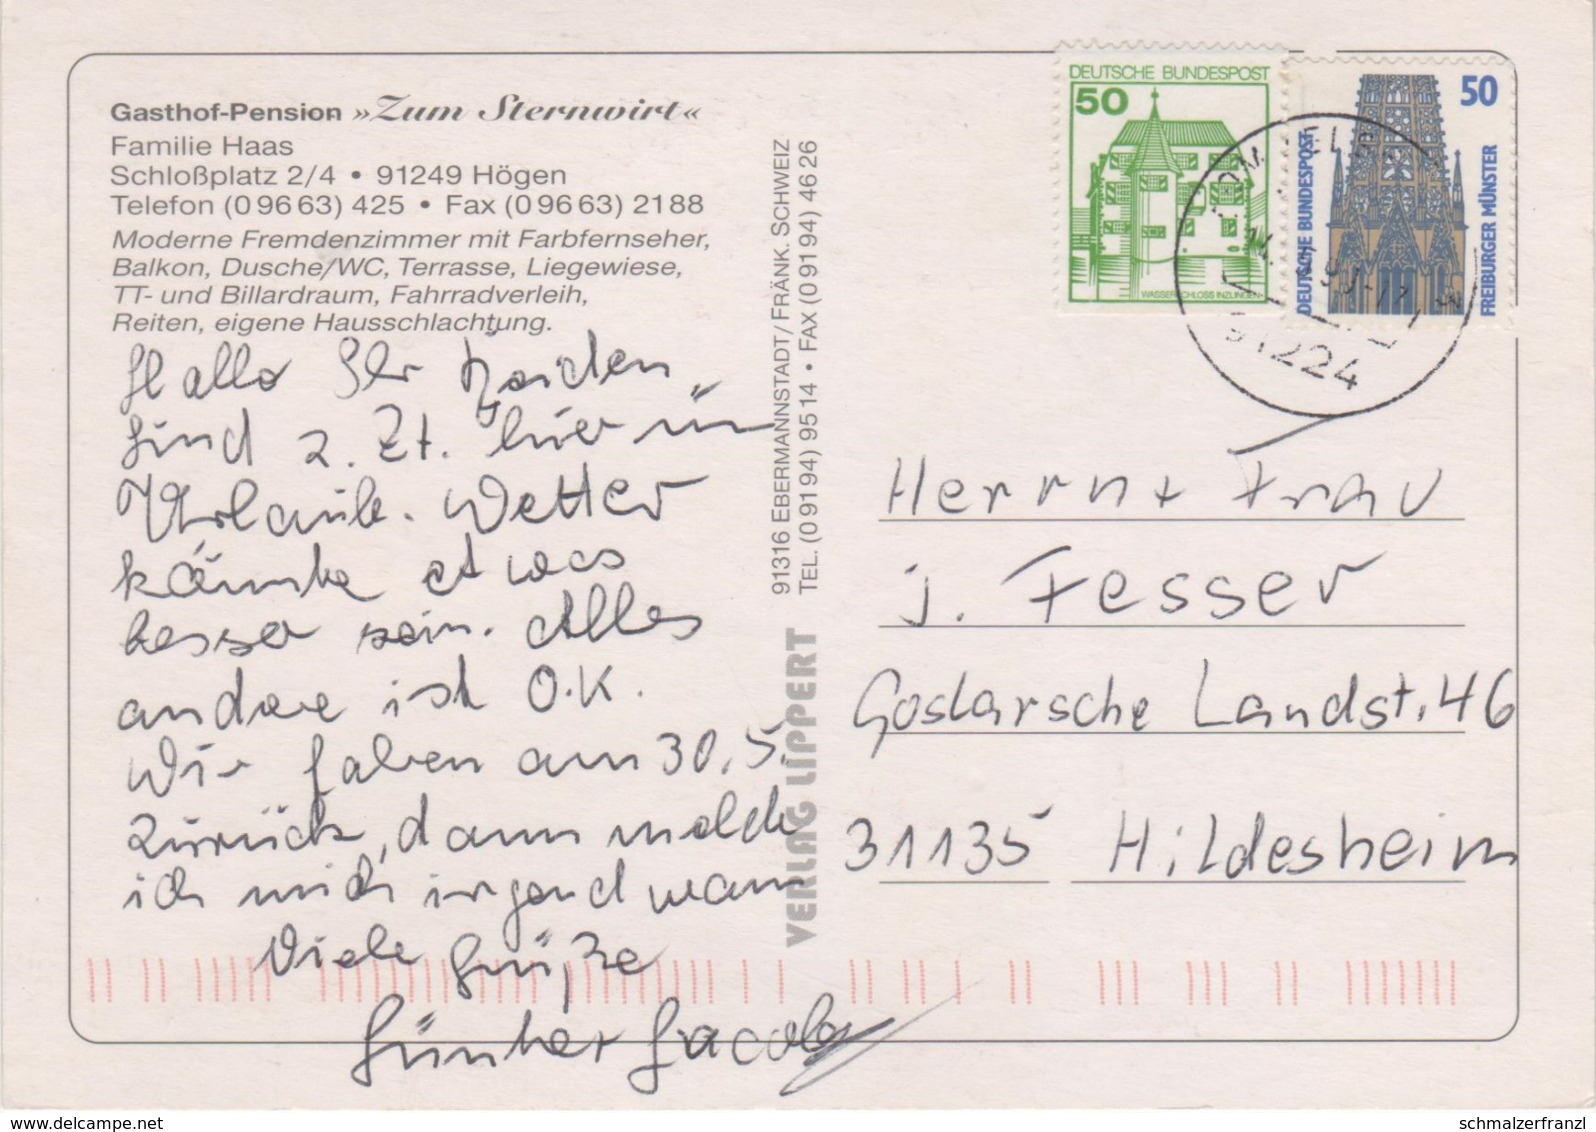 Gasthof-Pension »Zum Sternwirt«
Familie Haas
Schloßplatz 2/4 • 91249 Högen
Telefon (0 96 63) 425 • Fax (0 96 63) 21 88
Moderne Fremdenzimmer mit Farbfernseher,
Balkon, Dusche/WC, Terrasse, Liegewiese,
TT- und Billardraum, Fahrradverleih,
Reiten, eigene Hausschlachtung.
Hallo Ihr Beiden
sind z. Zt. hier in
Urlaub. Wetter
könnte etwas
besser sein. Alles
andere ist O.K.
Wir fahren am 30.5.
zurück, dann melde
ich mich irgendwann
Viele Grüße
Günther Jacobs
91316 EBERMANNSTADT/FRÄNK. SCHWEIZ
TEL. (0 91 94) 95 14 • FAX (0 91 94) 46 26
VERLAG LIPPERT
DEUTSCHE BUNDESPOST
50
WASSERSCHLOSS INZLINGEN
50
DEUTSCHE BUNDESPOST
FREIBURGER MÜNSTER
91224
Herrn + Frau
J. Fesser
Goslarsche Landst. 46
31135 Hildesheim
www.delcampe.net
schmalzerfranzl